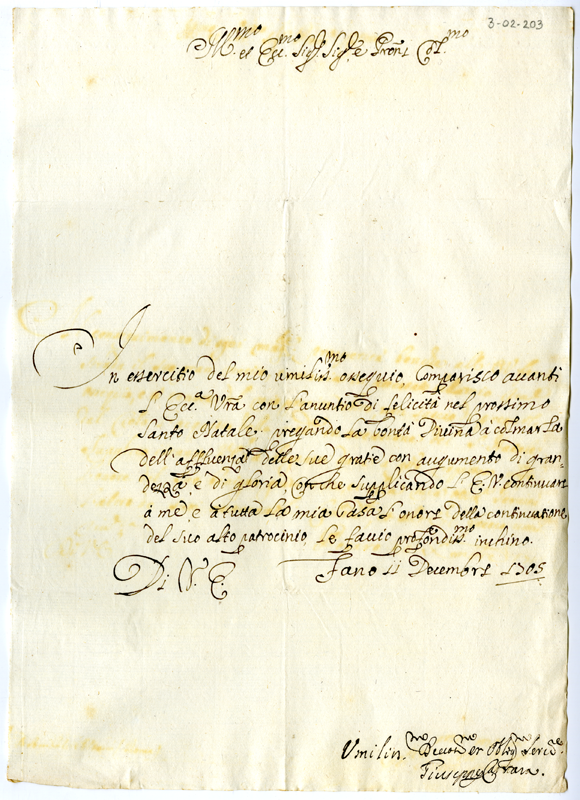 3-02-203
Ill.mo et Ecc.mo Sig.r Sig.re Pron. Col.mo
In essercitio del mio umiliss.mo ossequio, Comparisco avanti
l'Ecc.a Vra con l'anuntio di felicità nel prossimo
Santo Natale, pregando la bontà Divina à colmarla
dell'affluenza delle sue gratie con augumento di gran-
dezza, e di gloria, che supplicando l'E.V. continuare
à me, e à tutta la mia Casa l'onore della continuatione
del suo alto patrocinio, le faccio profondiss.mo inchino.
Di V. E. Fano 11 Decembre 1705
Umiliss. Devot.mo et Obblig.mo Serv.re
Giuseppe